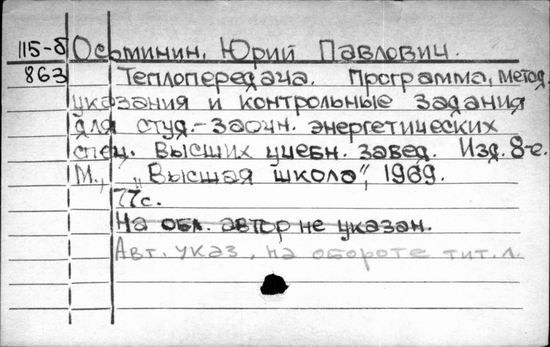 115-б Осьминин, Юрий Павлович.
863 Теплопередача. Программа, метод.
указания и контрольные задания
для студ.-заочн. энергетических
спец. высших учебн. завед. Изд. 8-е.
М., "Высшая школа", 1969.
77с.
На обл. автор не указан.
Авт. указ. на обороте тит. л.